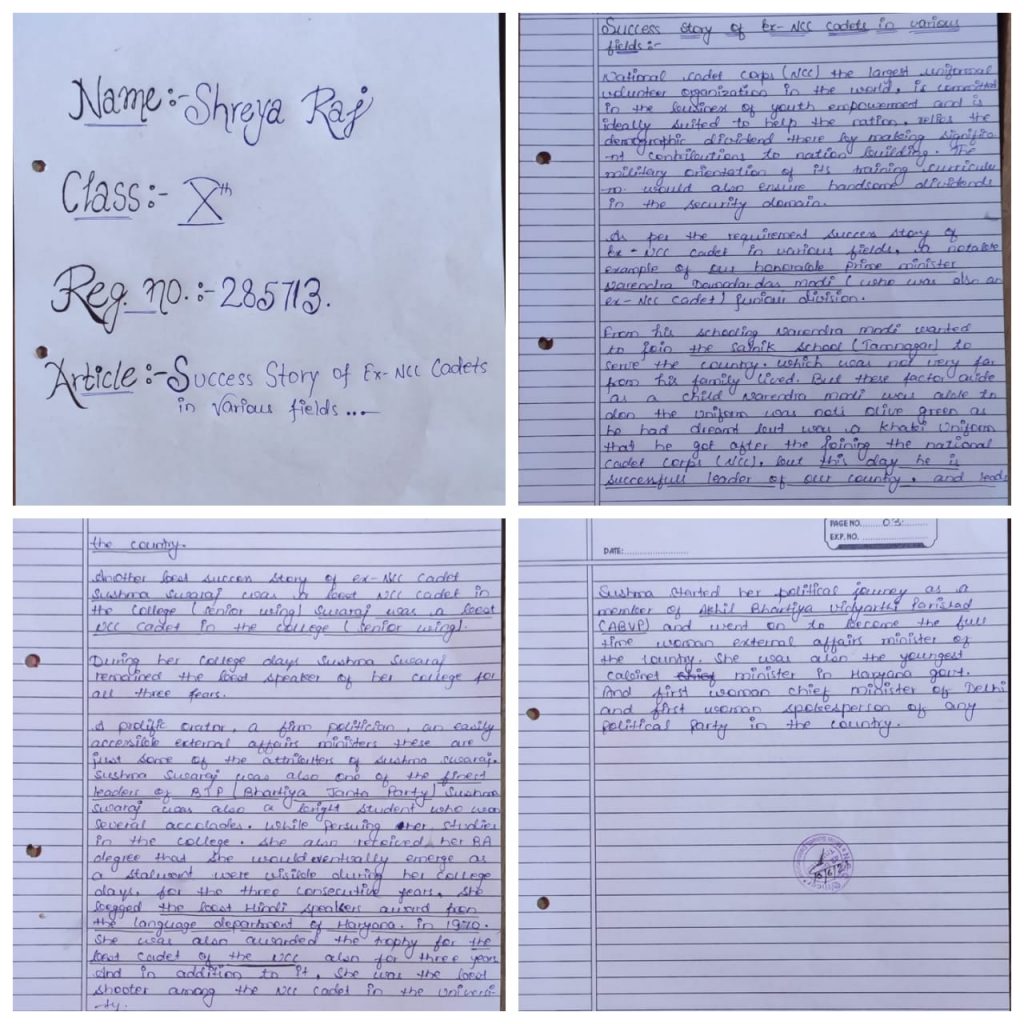 Name:- Shreya Raj
Class:- Xth
Reg. no.:- 285713.
Article:- Success Story of Ex-Ncc Cadets
in various fields...-
Success Story of Ex-Ncc Cadets in various
fields:-
National cadet corps (Ncc) the largest uniformal
volunteer organization in the world, is committed
in the business of youth empowerment and is
ideally suited to help the nation. relies the
demographic dividend there by making significa-
nt contributions to nation building. The
military orientation of its training curriculu
-m would also ensure handsome dividends
in the security domain.
As per the requirement success story of
Ex-Ncc cadet in various fields, a notable
example of our honorable prime minister
Narendra Damodardas modi (who was also an
ex-Ncc cadet) junior division.
From his schooling Narendra modi wanted
to join the Sainik school (Jamnagar) to
serve the country. which was not very far
from his family lived. But these factor aside
as a child Narendra modi was able to
don the uniform was not olive green as
he had dreamt but was a khaki uniform
that he got after the joining the national
cadet corps (Ncc), but this day he is
successfull leader of our country. and leads
the country.
Another best success story of ex-Ncc cadet
Sushma Swaraj was a best Ncc cadet in
the college (senior wing) Swaraj was a best
Ncc Cadet in the college (senior wing).
During her college days Sushma Swaraj
remained the best speaker of her college for
all three years.
A prolific orator, a firm politician, an easily
accessible external affairs ministers these are
just some of the attributers of sushma swaraj.
Sushma Swaraj was also one of the finest
leaders of BJP (Bhartiya Janta Party) Sushma
Swaraj was also a bright student who won
several accolades. while persuing her studies
in the college. she also received her BA
degree that she would eventually emerge as
a stalwart were visible during her college
days, for the three consecutive years, she
begged the best Hindi speakers award from
the language department of Haryana. in 1970.
She was also awarded the trophy for the
best cadet of the NCC also for three years
and in addition to it, she was the best
shooter among the Ncc cadet in the universi-
-ty.
PAGE NO. 03.
EXP. NO.
DATE:
Sushma started her political jouney as a
member of Akhil Bhartiya Vidyarthi Parishad
(ABVP) and went on to become the full
time woman external affairs minister of
the country. She was also the youngest
cabinet chief minister in Haryana govt.
And first woman chief minister of Delhi
and first woman spokesperson of any
political Party in the country.